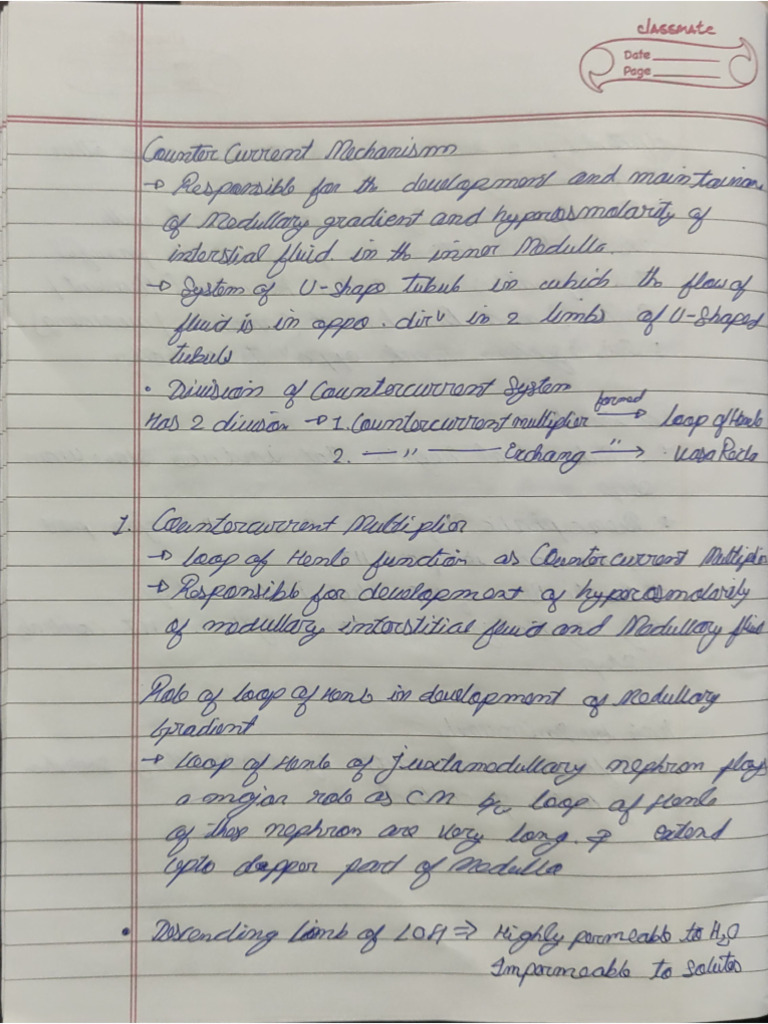 classmate
Date
Page
Counter Current Mechanism
→ Responsible for the development and maintainance
of Medullary gradient and hyperosmolarity of
interstial fluid in the inner Medulla.
→ System of U-shape tubule in which the flow of
fluid is in oppo. dirⁿ in 2 limbs of U-Shaped
tubule
• Division of Countercurrent System
Has 2 division → 1. Countercurrent multiplier formed → loop of Henle
2. — " — Exchang — " → Vasa Recta
1. Countercurrent Multiplier
→ loop of Henle function as Countercurrent Multiplier
→ Responsible for development of hyperosmolarity
of medullary interstitial fluid and Medullary fluid
Role of loop of Henle in development of Medullary
Gradient
→ Loop of Henle of juxtamedullary nephron play
a major role as CM b/c loop of Henle
of these nephron are very long & extend
upto depper part of Medulla
• Descending limb of LOH ⇒ Highly permeable to H₂O
Impermeable to Solutes